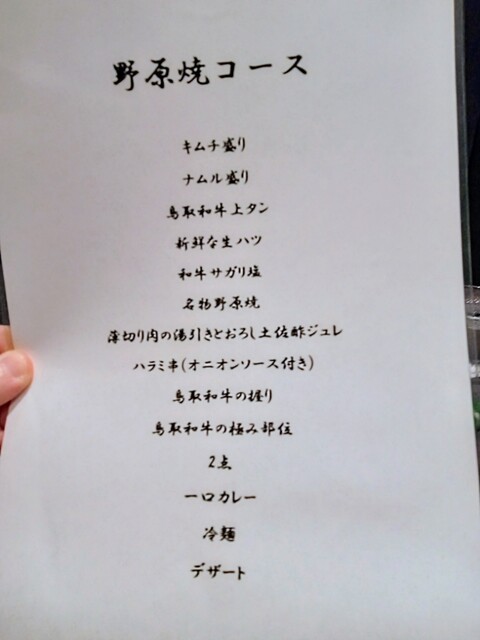 野原焼コース
キムチ盛り
ナムル盛り
鳥取和牛上タン
新鮮な生ハツ
和牛サガリ塩
名物野原焼
薄切り肉の湯引きとおろし土佐酢ジュレ
ハラミ串(オニオンソース付き)
鳥取和牛の握り
鳥取和牛の極み部位
2点
一口カレー
冷麺
デザート